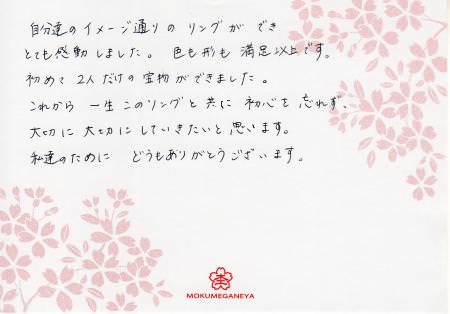 自分達のイメージ通りの リングが でき
とても感動しました。 色も形も 満足以上です。
初めて 2人だけの宝物ができました。
これから 一生 このリングと共に 初心を 忘れず、
大切に 大切に していきたいと 思います。
私達のために どうもありがとうございます。
MOKUMEGANEYA